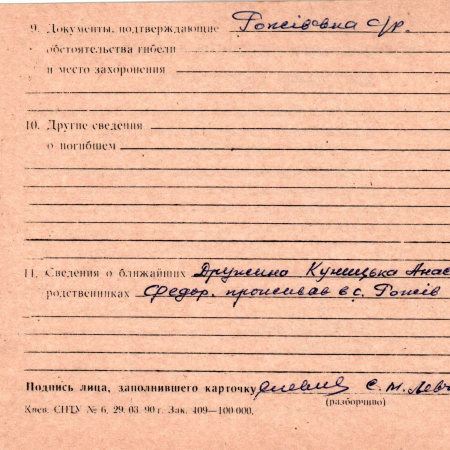 9. Документы, подтверждающие Рожівська с/р.
обстоятельства гибели
и место захоронения
10. Другие сведения
о погибшем
11. Сведения о ближайших Дружина Куницька Анас
родственниках Федор. проживав в с. Рожів
Подпись лица, заполнившего карточку С. М. Левч
(разборчиво)
Киев. СПТУ № 6, 29. 03. 90 г. Зак. 409—100 000.